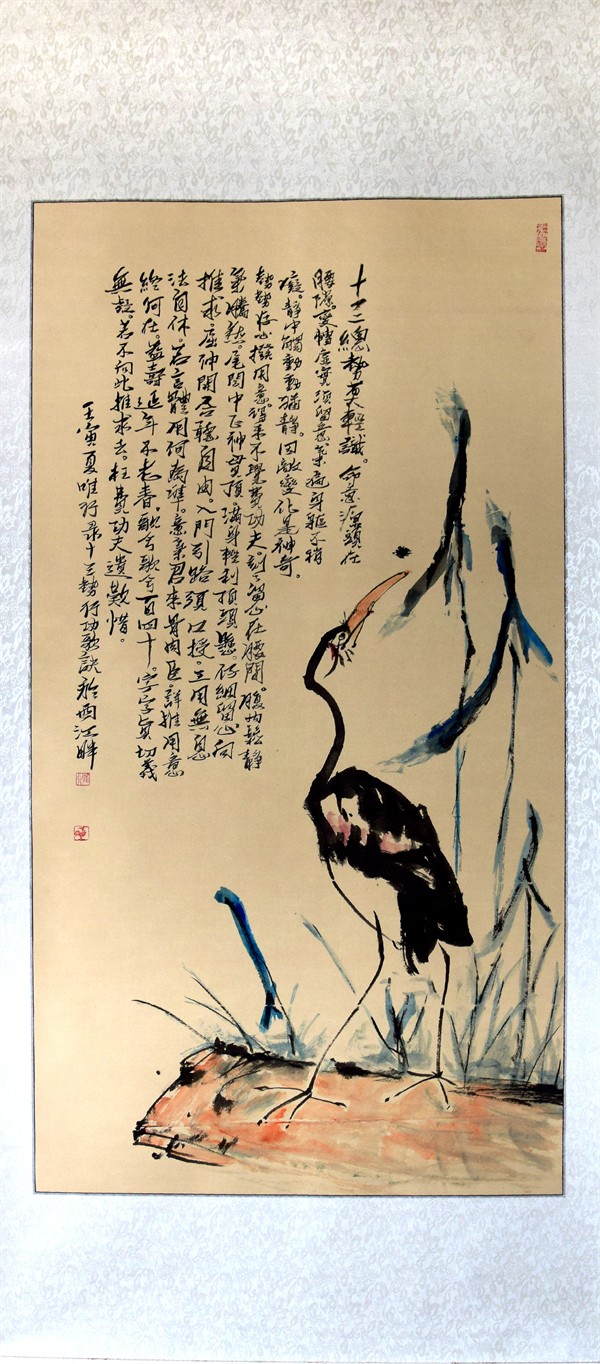 十三總勢莫輕識。命意源頭在
腰隙。變轉虛實須留意。氣遍身軀不稍
癡。静中觸動動猶静。因敵變化是神奇。
勢勢存心揆用意。得来不覺費功夫。刻刻留心在腰間。腹内鬆静
氣騰然。尾閭中正神貫頂。滿身輕利頂頭懸。仔細留心向
推求。屈伸開合聽自由。入門引路須口授。工用無息
法自休。若言體用何為準。意氣君来骨肉臣。詳推用意
終何在。益壽延年不老春。歌兮歌兮百四十。字字真切義
無疑。若不向此推求去。枉費功夫遺歎惜。
壬寅夏唯行录十三勢行功歌訣於西江畔